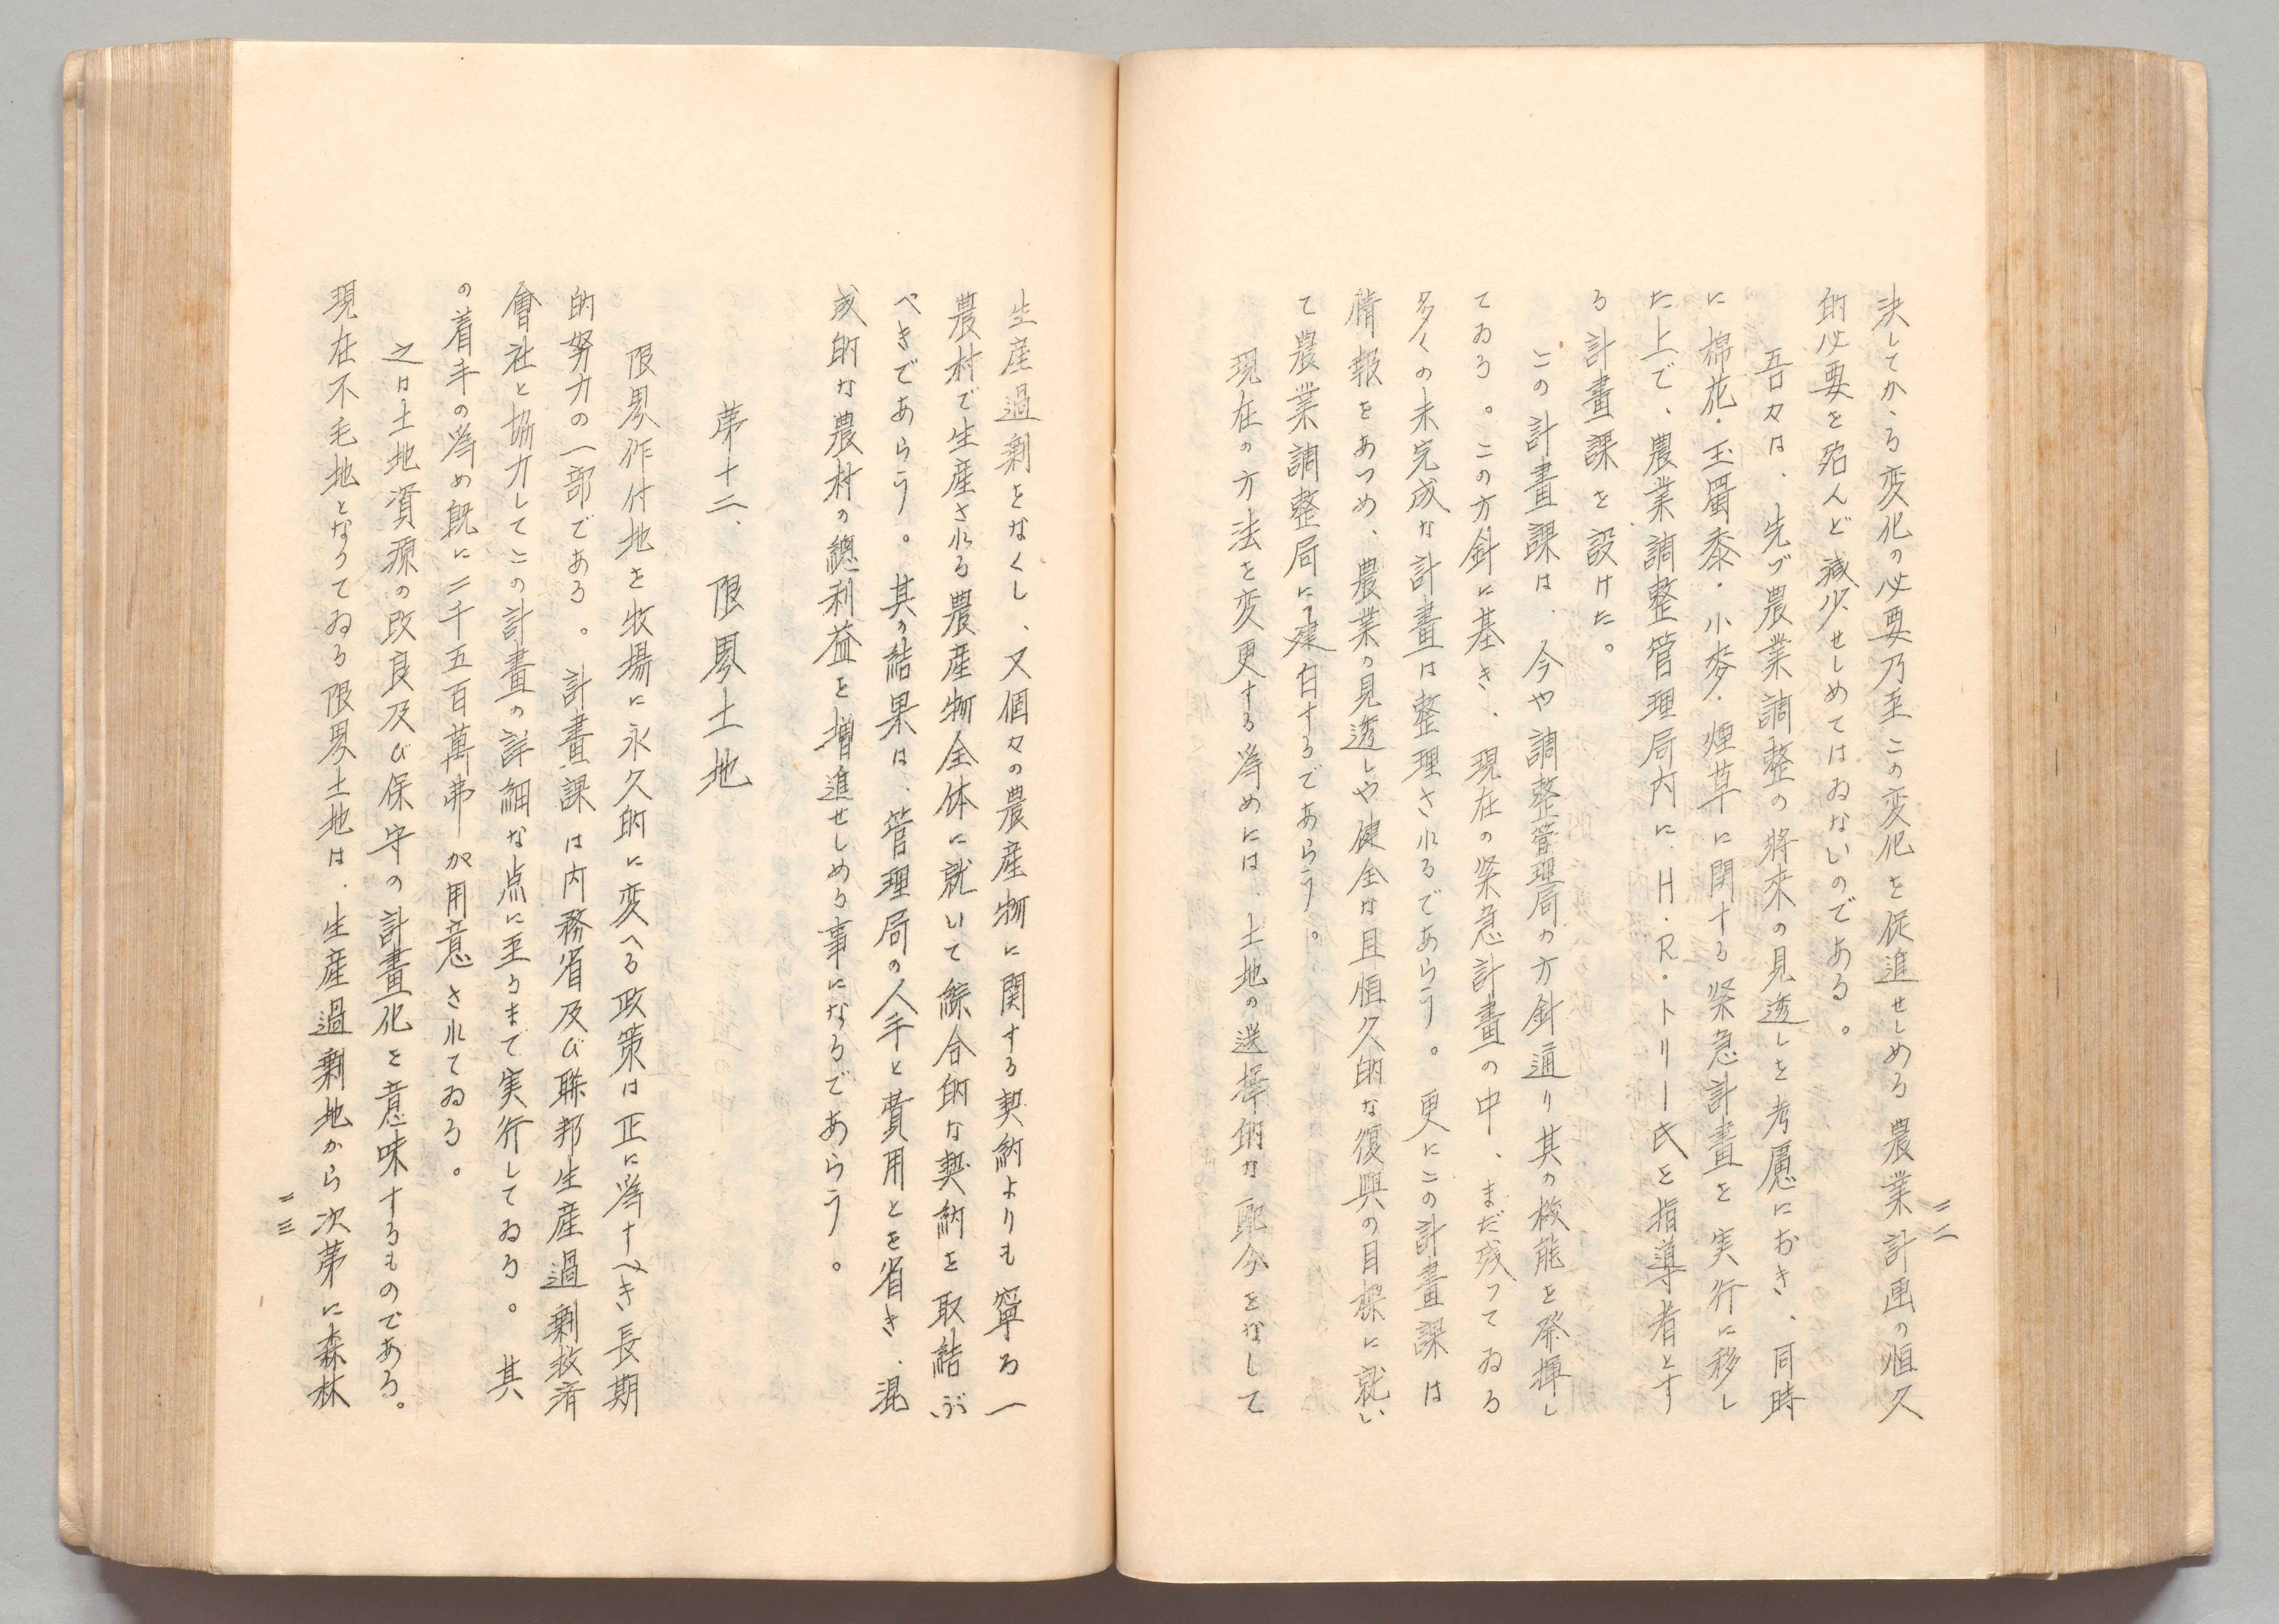 二二
決してかゝる変化の必要乃至この変化を促進せしめる農業計画の恒久
的必要を殆んど減少せしめてはゐないのである。
吾々は、先づ農業調整の将来の見透しを考慮におき、同時
に棉花・玉蜀黍・小麥・煙草に関する緊急計畫を実行に移し
た上で、農業調整管理局内に、H・R・トリー氏を指導者とす
る計畫課を設けた。
この計畫課は、今や調整管理局の方針通り其の機能を発揮し
てゐる。この方針に基き、現在の緊急計畫の中、まだ残つてゐる
多くの未完成な計畫は整理されるであらう。更にこの計畫課は
情報をあつめ、農業の見透しや健全な且恒久的な復興の目標に就い
て農業調整局に建白するであらう。
現在の方法を変更する為めには、土地の選擇的な配分をなして
生産過剰をなくし、又個々の農産物に関する契約よりも寧ろ一
農村で生産される農産物全体に就いて綜合的な契約を取結ぶ
べきであらう。其の結果は、管理局の人手と費用とを省き、混
成的な農村の總利益を増進せしめる事になるであらう。
第十二、限界土地
限界作付地を牧場に永久的に変へる政策は正に為すべき長期
的努力の一部である。計畫課は内務省及び聯邦生産過剰救済
會社と協力してこの計畫の詳細な点に至るまで実行してゐる。其
の着手の為め既に二千五百萬弗が用意されてゐる。
之は土地資源の改良及び保守の計畫化を意味するものである。
現在不毛地となつてゐる限界土地は、生産過剰地から次第に森林
二三